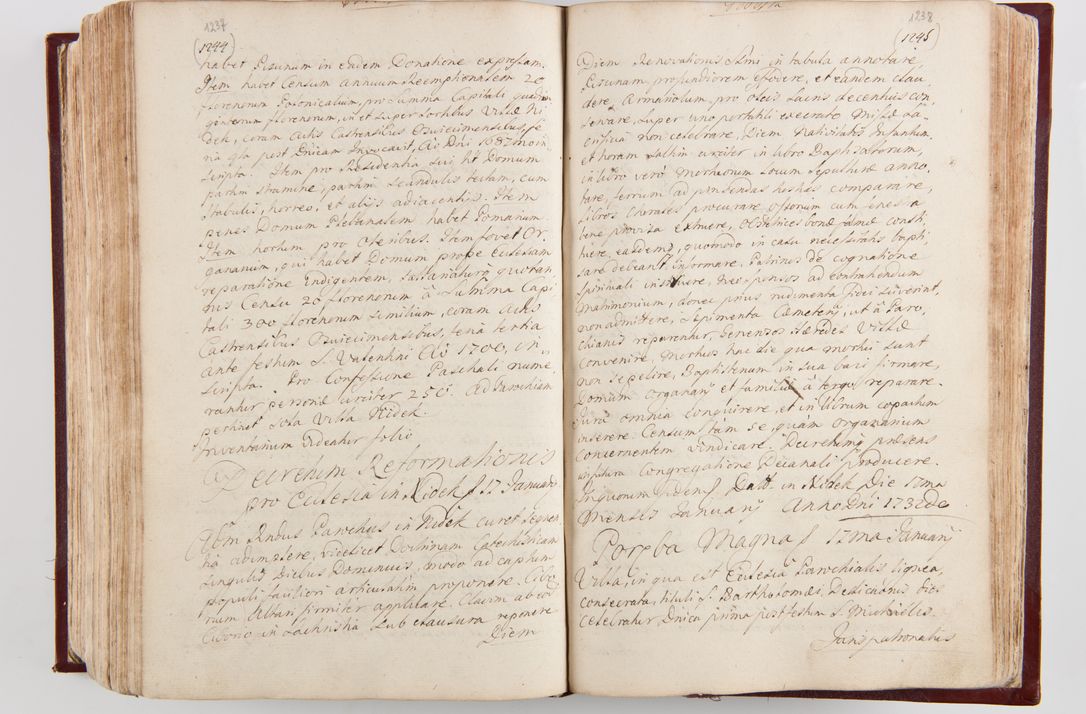 1237
(1244)
habet Piscinam in eadem Donatione expressam.
Item habet Censum annuum Reemptionalem 20
florenorum Polonicalium, pro Summa Capitali quadrin
gintorum florenorum, in et super Sortibus Villæ Ni
dek, coram Actis Castrensibus Osviecimensibus, fe
ria 4ta post Dnicam Invocavit, Ao Dni 1687mo in
scripta. Item pro Residentia sui ht Domum
partim stramine, partim scandulis tectam, cum
stabulis, horreo, et aliis adiacentiis. Item
penes Domum Plebanalem habet Pomarium.
Item hortum pro oleribus. Item fovet Or,
ganarium, qui habet Domum prope Ecclesiam
reparatione indigentem, Salarianatur quotan
nis Censu 20 florenorum à Summa Capi
tali 300 florenorum similium, coram Actis
Castrensibus Osviecimensibus, feria tertia
ante festum S. Valentini Ao 1700, in
scripta. Pro Confessione Paschali nume
rantur personæ circiter 250. Ad Parochiam
pertinet sola Villa Nidek.
Inventarium videatur folio
Decretum Reformationis
pro Ecclesia in Nidek 17 Januarij
Idem Rndus Parochus in Nidek curet sequen
tia adimplere, videlicet Doctrinam Catechisticam
singulis Diebus Dominicis, modo ad captum
populi faciliori articulatim proponere. Cibo
rium Altari firmiter applicare. Clavim ab eo
Ciborio in Zachristia sub clausura reponere
Diem
1238
(1245)
Diem Renovationis SSmi in tabula annotare,
Piscinam profundiorem effodere, et eandem clau
dere. Armariolum pro Oleis Sacris decentius con
servare, super uno portatili execrato Missæ sa=
crificia non celebrare, Diem Nativitatis Infantum
et horam saltim circiter in libro Baptisatorum,
in libro vero Mortuorum locum sepulturæ anno,
tare, ferrum ad pinsendas hostias comparare,
libros Chorales procurare, Ossorium cum fenestra
bene provisa extruere, Obstetrices bonæ famæ consti
tuere, easdemq, quomodo in casu necessitatis bapti,
sare debeant, informare. Patrinos de cognatione
spirituali instruere, nec sponsos ad contrahendum
Matrimonium, donec prius rudimenta fidei sciverint,
non admittere, Sepimenta Cæmeterij, ut à Paro,
chianis reparentur, Generosos Hæredes Villæ
convenire, Mortuos hac die qua mortui sunt
non sepelire, Baptisterium in sua basi firmare,
Domum Organarij et familiæ à tergo reparare.
Jura omnia conquirere, et in librum copiatum
inserere. Censum tàm se, quàm Organarium
concernentem vindicare, Decretumq præsens
in futura Congregatione Decanali producere.
In quorum fidem Datt. in Nidek Die 17ma
Mensis Januarij Anno Dni 1732do
Poręba Magna 17ma Januarij
Villa, in qua est Ecclesia Parochialis lignea,
consecrata, tituli S. Bartholomæi, Dedicationis dies
celebratur Dnica prima post festum S. Michaelis.
Jus patronatus